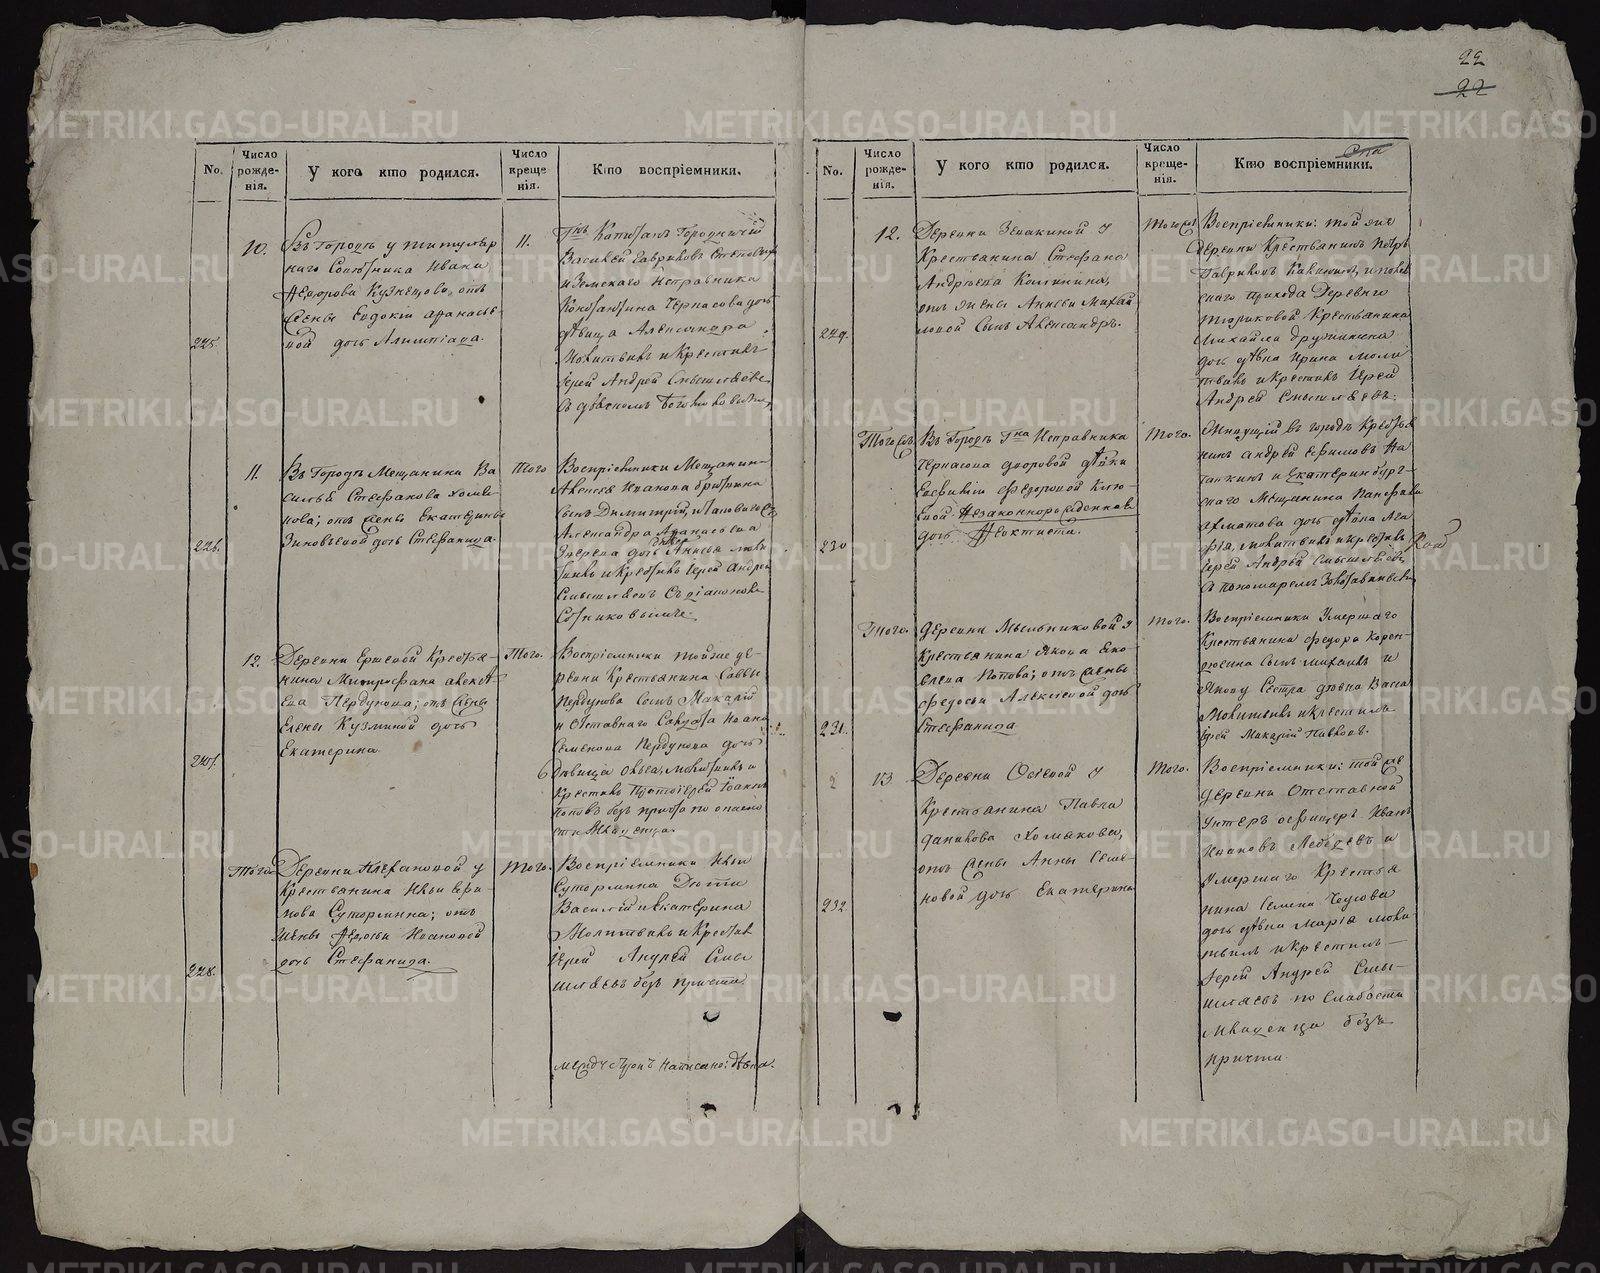 22
22
No.
Число рожде-нія.
У кого кто родился.
Число креще нія.
Кто воспріемники.
225.
10.
Въ Городѣ у титуляр
наго Совѣтника Ивана
Федорова Кузнецова, отъ
жены Евдокіи Афанасье
вой дочь Алимпіада.
11.
Гнъ Капитанъ Городничій
Василей Гавриловъ
и Земскаго Исправника
Константина Черкасова дочь
дѣвица Александра
Молитвилъ и Крестилъ
Іерей Андрей Смышляевъ
226.
11.
Въ Городѣ Мещанина Ва
силья Стефанова
нова; отъ жены Екатерины
Зиновьевой дочь Стефанида.
Того
Воспріемники Мещанин-
Алексея Иванова
сынъ Димитрій,
Александра Афанасьева
Зверева дочь Анисья моли
твилъ и Крестилъ Іерей Андрей
Смышляевъ Съ діакономъ
227.
12.
Деревни Ершевой Крестья-
нина Митрофана Алексѣ
ева Пердунова; отъ жены
Елены Кузминой дочь
Екатерина
Того.
Воспріемники той же де-
ревни Крестьянина Саввы
Пердунова сынъ Макарій
и Отставнаго Солдата Ивана
Семенова Пердунова дочь
дѣвица Ольга, молитвилъ и
Крестилъ Протоіерей Іоаннъ
Поповъ безъ причта по опасно
сти Младенца.
228.
Того
Деревни Клевакиной у
Крестьянина Ильи Ефи
мова Сутормина; отъ
Жены Федосьи Ивановой
дочь Стефанида.
Того.
Воспріемники Ильи
Сутормина Дети
Василій и Екатерина
Молитвилъ и Крестилъ
Іерей Андрей Смы
шляевъ безъ причта
между строкъ написано: дѣвка.
No.
Число рожде-нія.
У кого кто родился.
Число креще-нія.
Кто воспріемники.
229.
12.
Деревни у
Крестьянина Стефана
Андреева Калинина,
отъ жены Анисьи Михай
ловой сынъ Александръ.
Тогожъ
Воспріемники: той же
деревни Крестьянинъ Петръ
Гавриловъ
скаго прихода Деревни
Крестьянина
Михайла Дружинина
дочь дѣвка Ирина моли
твилъ и Крестилъ Іерей
Андрей Смышляевъ.
230
Тогожъ
Въ Городѣ Гна Исправника
Черкасова дворовой дѣвки
Евфиміи Федоровой
Незаконнорожденная
дочь Феоктиста.
Того.
Живущій въ городѣ Крестья
нинъ Андрей Ефимовъ
и Екатеринбург-
скаго Мещанина Панфила
Ахматова дочь дѣвка Ага
фія, молитвилъ и крестилъ
Іерей Андрей Смышляевъ
съ пономаремъ
231.
Того.
Деревни Мыльниковой у
Крестьянина Якова Яко
влева Попова; отъ жены
Федосьи Алексѣевой дочь
Стефанида
Того.
Воспріемники Умершаго
Крестьянина Федора
сынъ Михаилъ и
Якову Сестра дѣвка Васса
Молитвилъ и крестилъ
Іерей Макарій Павловъ.
232.
13
Деревни Осѣевой у
Крестьянина Павла
Данилова Хомякова,
отъ жены Анны Семе
новой дочь Екатерина
Того.
Воспріемники: той же
деревни Отставной
Унтеръ офицеръ Иванъ
Ивановъ Лебедевъ и
Умершаго Крестья
нина Семена
дочь дѣвка Марія моли
твилъ и крестилъ—
Іерей Андрей Смы-
шляевъ по Слабости
младенца безъ
причта.